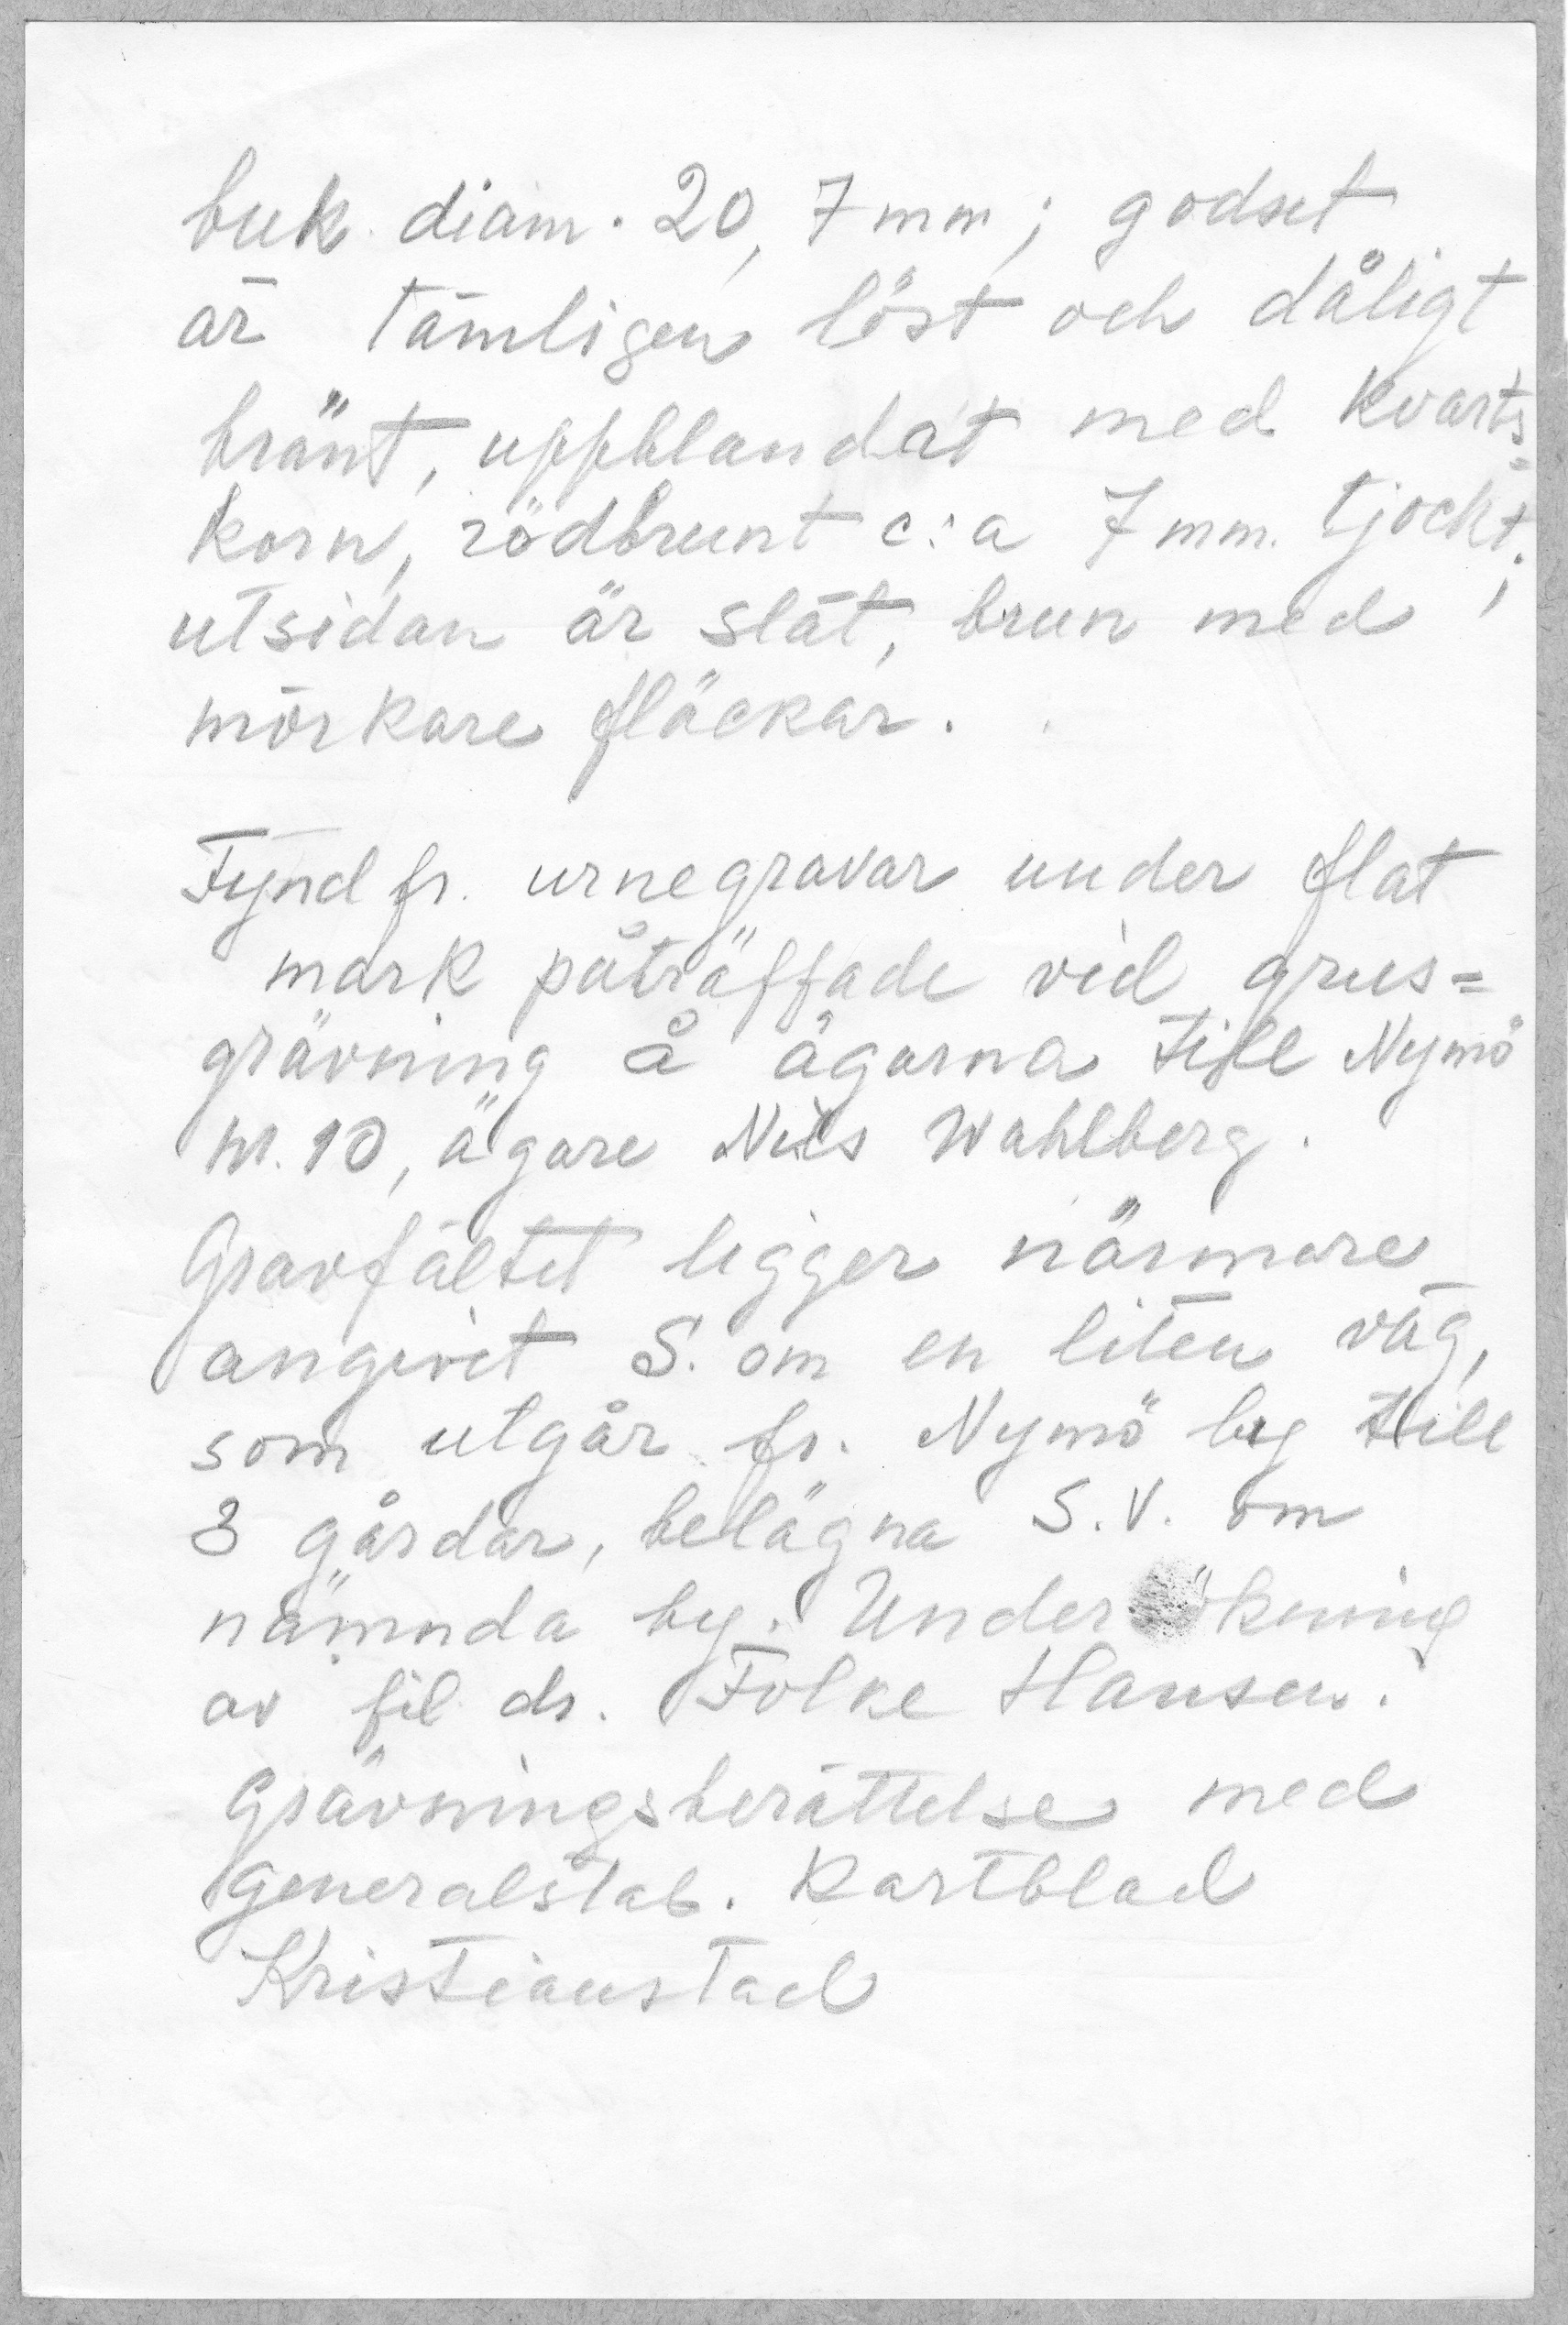 buk. diam. 20,7 mm; godset
är tämligen löst och dåligt
bränt, uppblandat med kvarts=
korn, rödbrunt c:a 7 mm. tjockt;
utsidan är slät, brun med
mörkare fläckar.
Fynd fr. urnegravar under flat
mark påträffade vid grus=
grävning å ägorna till Nymö
nr. 10, ägare Nils Wahlberg.
Gravfältet ligger närmare
angivit S. om en liten väg,
som utgår fr. Nymö by till
3 gårdar, belägna S.V. om
nämnda by. Undersökning
av fil dr. Folke Hansen.
Grävningsberättelse med
generalstab. kartblad
Kristianstad